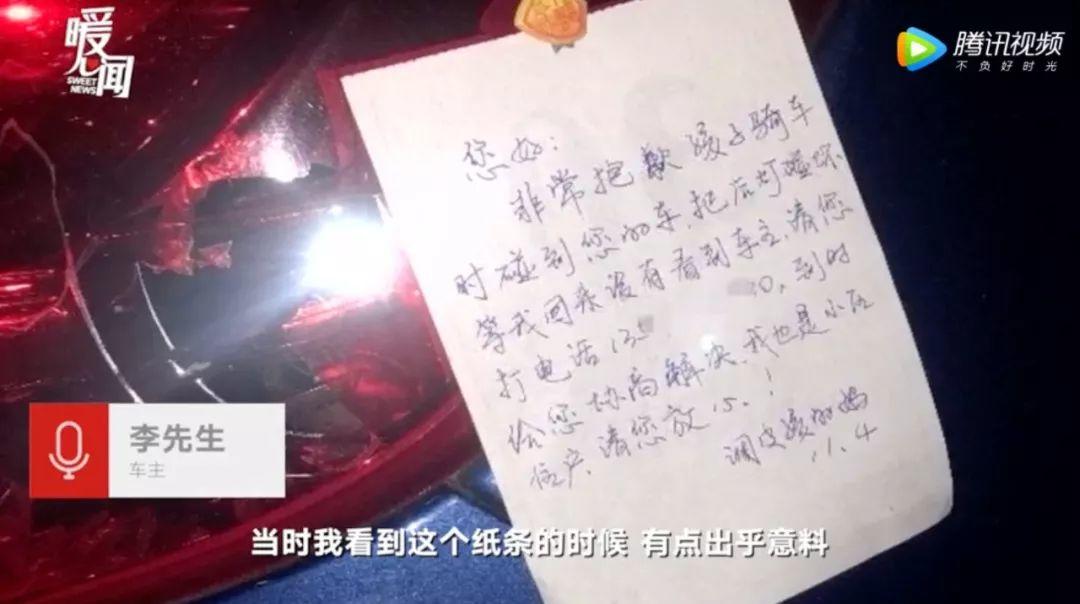 暖闻
SWEET
NEWS
腾讯视频
不负好时光
您好：
非常抱歉孩子骑车
时碰到您的车，把后灯碰坏
等我回来没有看到车主，请您
打电话135 0，到时
给您协商解决，我也是小区
住户，请您放心！
调皮孩的妈
11.4
李先生
车主
当时我看到这个纸条的时候 有点出乎意料